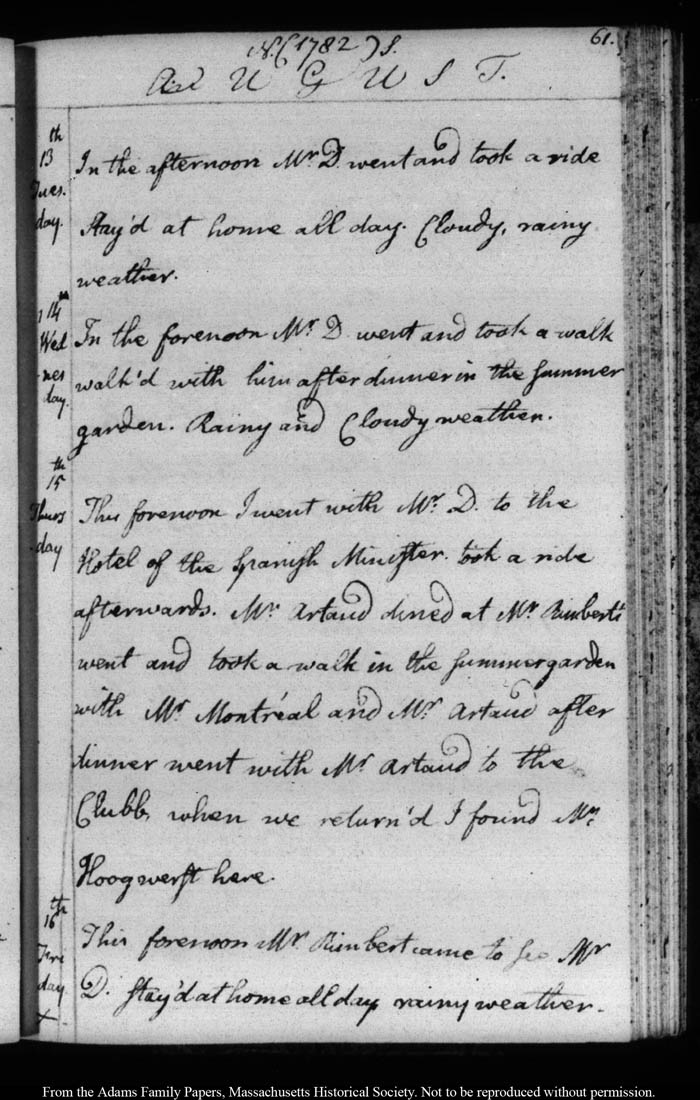 N.(1782)S. 61.
A U G U S T.
13th Tuesday. In the afternoon Mr D. went and took a ride
Stay'd at home all day. Cloudy, rainy
weather.
14th Wednesday. In the forenoon Mr. D. went and took a walk
walk'd with him after dinner in the summer
garden. Rainy and Cloudy weather.
15th Thursday This forenoon I went with Mr. D. to the
Hotel of the Spanish Minister. took a ride
afterwards. Mr. Artaud dined at Mr Rimberts
went and took a walk in the summergarden
with Mr Montréal and Mr. Artaud after
dinner went with Mr Artaud to the
Clubb, when we return'd I found Mr.
Hoogwerft here.
16th Friday This forenoon Mr. Rimbert came to see Mr
D. stay'd at home all day rainy weather.
From the Adams Family Papers, Massachusetts Historical Society. Not to be reproduced without permission.